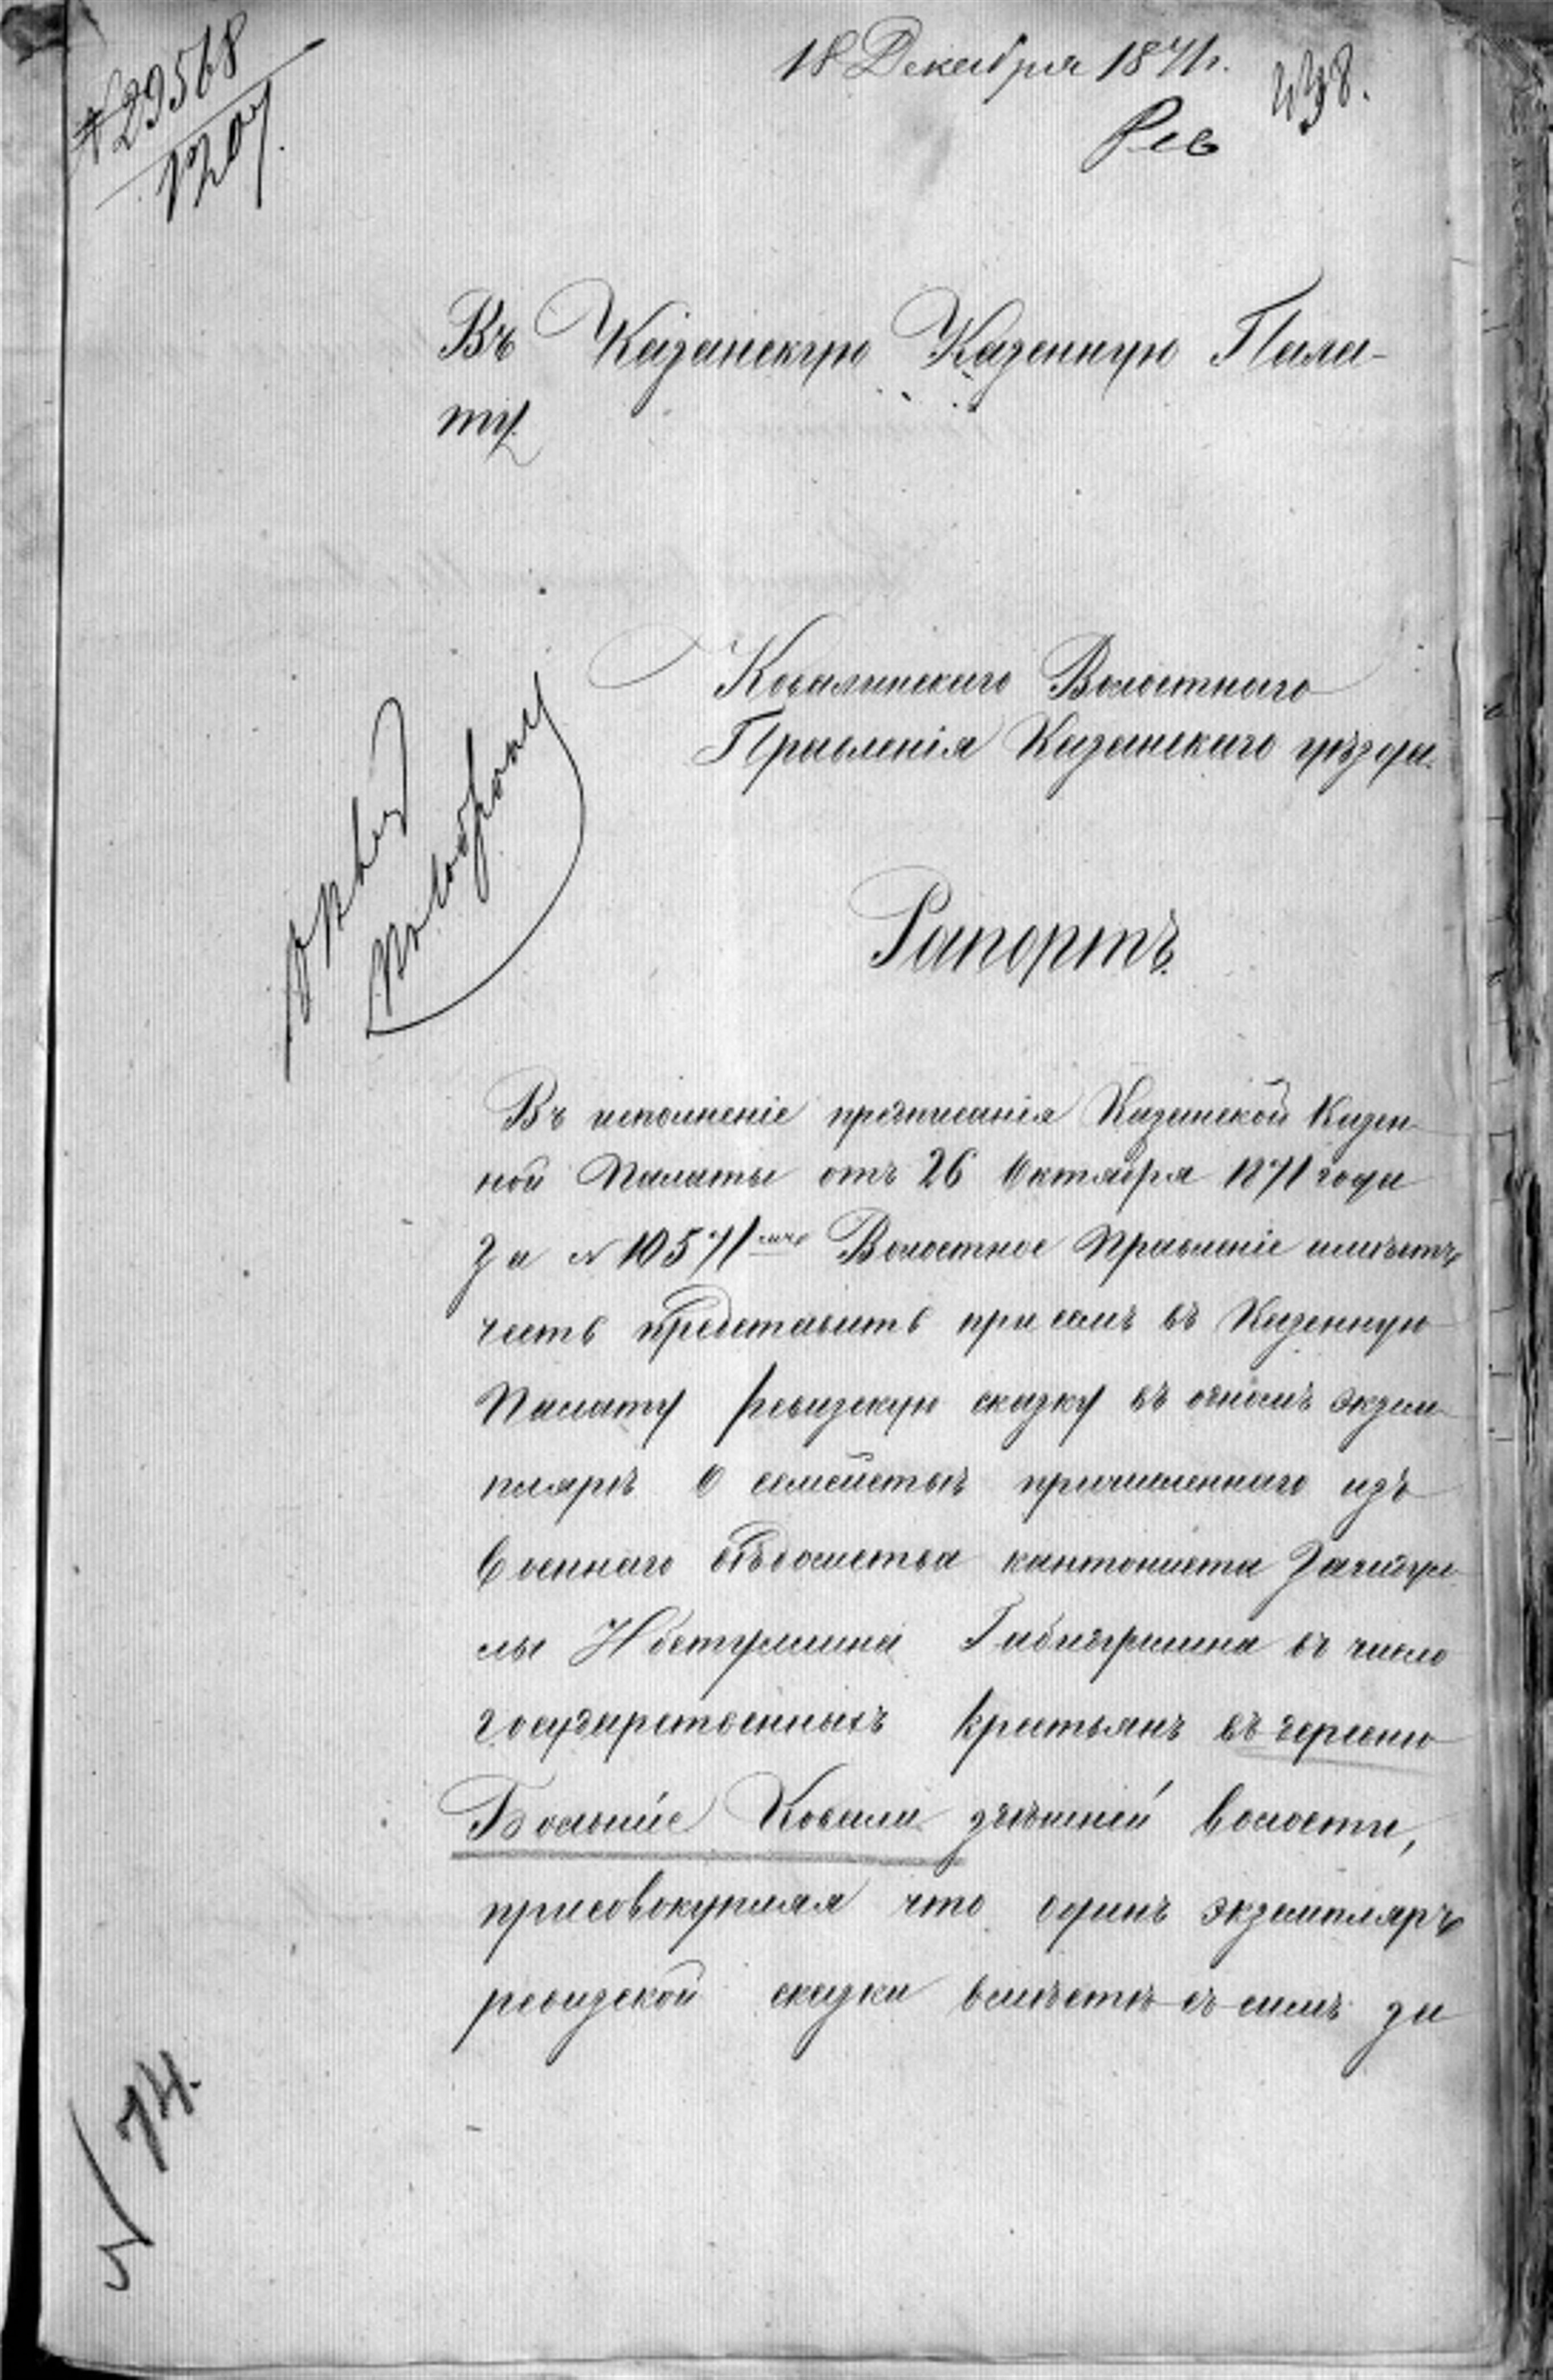 № 29568
1207.
18 Декабря 1871 г.
Рев
Въ Казанскую Казенную Пала-
ту
Ковалинскаго Волостнаго
Правленія Казанскаго уѣзда.
Рапортъ
Въ исполненіе предписанія Казанской Казен-
ной Палаты отъ 26 Октября 1871 года
За № 10571 Волостное Правленіе имѣетъ
честь представить при семъ въ Казенную
Палату ревизскую сказку въ одномъ экзем-
плярѣ о семействѣ причисленнаго изъ
военнаго вѣдомства кантониста
лы Габитулина въ число
государственныхъ крестьянъ въ деревню
Большіе Ковали здѣшней волости,
присовокупляя что одинъ экземпляръ
ревизской сказки вмѣстѣ съ симъ за
74.